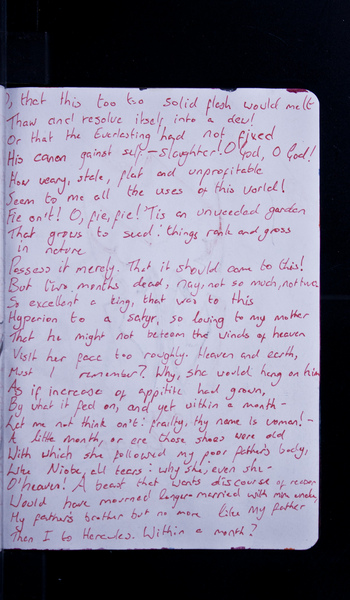 O, that this too too solid flesh would melt
Thaw and resolve itself into a dew!
Or that the Everlasting had not fixed
His canon gainst self-slaughter! O God, O God!
How weary, stale, flat and unprofitable
Seem to me all the uses of this world!
Fie on't! O, fie, fie! 'Tis an unweeded garden
That grows to seed: things rank and gross
in nature
Possess it merely. That it should come to this!
But two months dead; nay, not so much, not two,
So excellent a king, that was to this
Hyperion to a satyr, so loving to my mother
That he might not beteem the winds of heaven
Visit her face too roughly. Heaven and earth,
Must I remember? Why, she would hang on him
As if increase of appitite had grown,
By what it fed on; and yet within a month-
Let me not think on't: frailty, thy name is woman!-
A little month, or ere those shoes were old
With which she followed my poor father's body,
Like Niobe, all tears: why she, even she-
O heaven! A beast that wants discourse of reason
Would have mourned longer-married with mine uncle,
My father's brother but no more like my father
Then I to Hercules. Within a month?